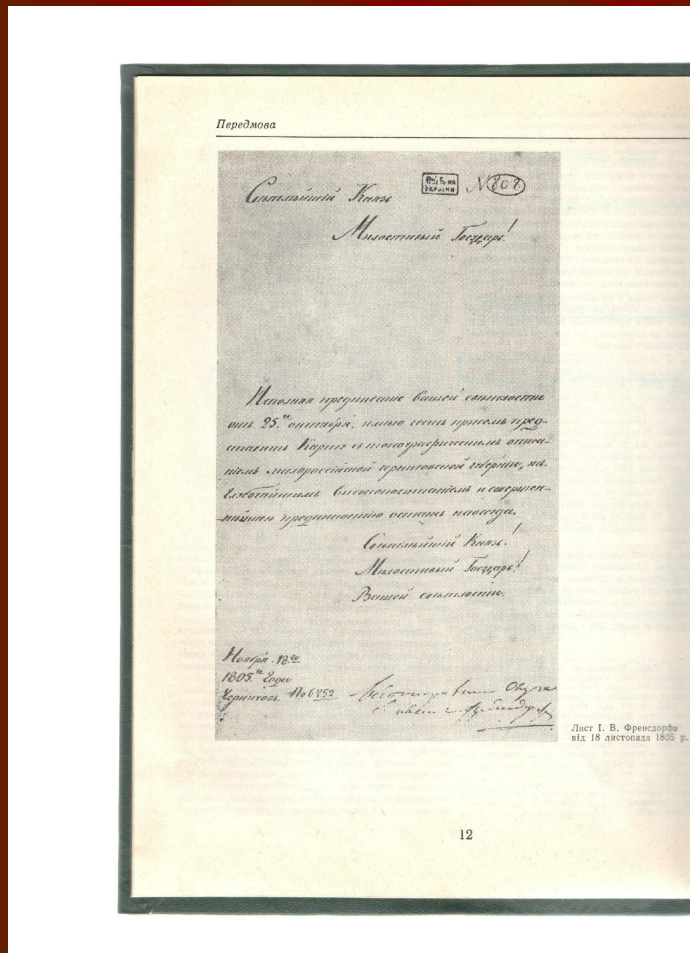 Передмова
N 808
Свѣтлѣйшій Князь
Милостивый Государь!
Исполняя предписаніе вашей свѣтлости
отъ 25.го октября, имѣю честь при семъ пред-
ставить Карту съ топографическимъ описа-
ніемъ малороссійской черниговской губерніи, въ
глубочайшимъ высокопочитаніемъ и совершен-
преданностію остаюсь навсегда.
Свѣтлѣйшій Князь!
Милостивый Государь!
Вашей свѣтлости.
Ноября 18.го
1805.го Года
Черниговъ. No 6752
Лист І. В. Френсдорфа
від 18 листопада 1805 р.
12